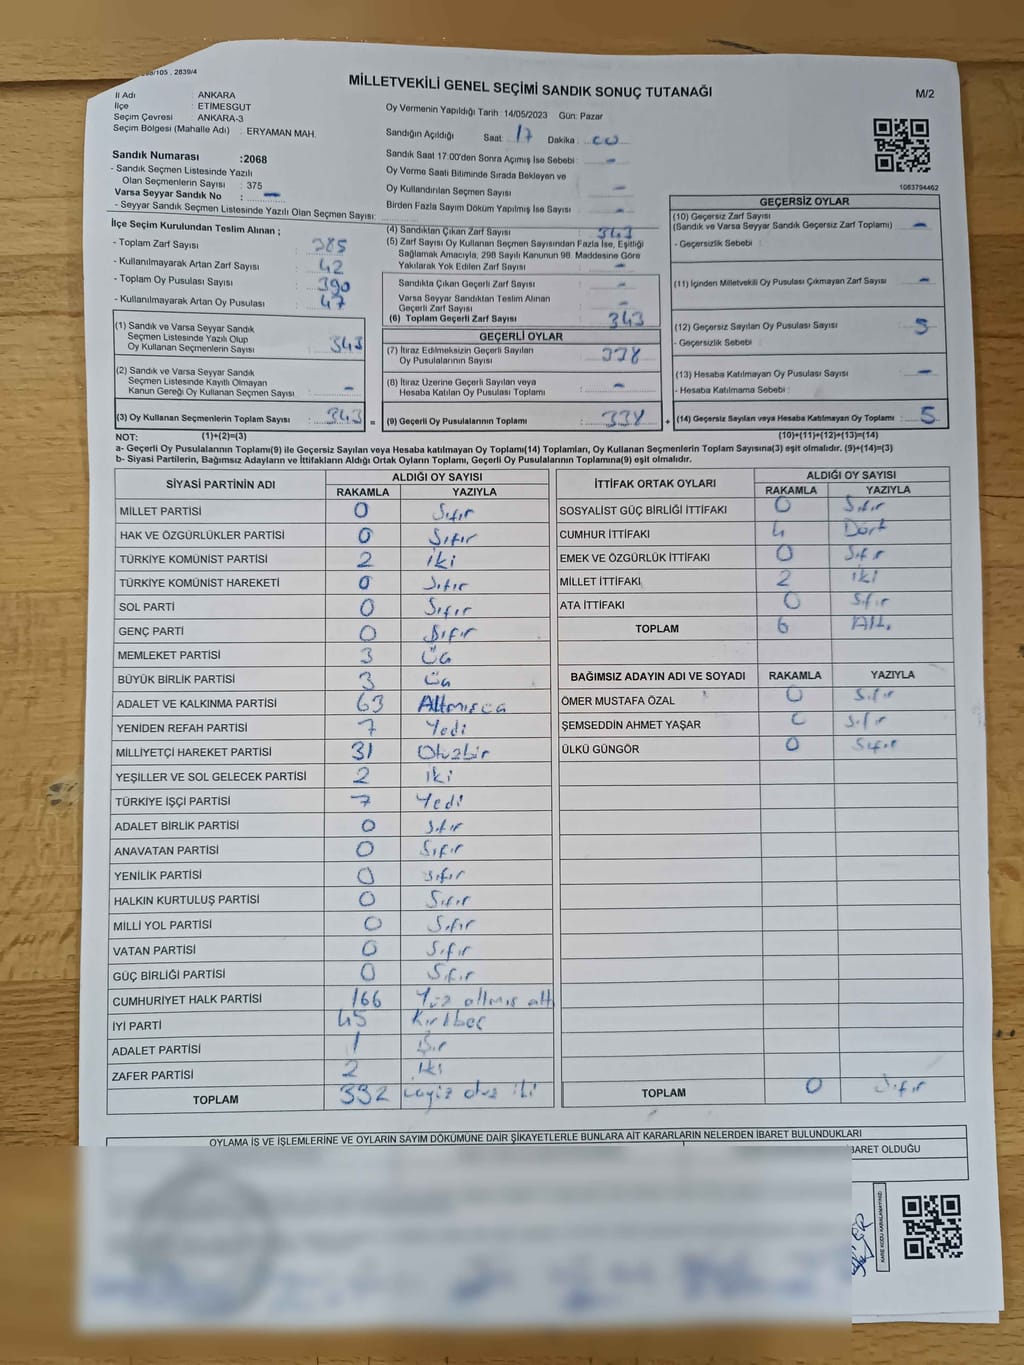 MİLLETVEKİLİ GENEL SEÇİMİ SANDIK SONUÇ TUTANAĞI
M/2
İl Adı : ANKARA
İlçe : ETİMESGUT
Seçim Çevresi : ANKARA-3
Seçim Bölgesi (Mahalle Adı) : ERYAMAN MAH.
Sandık Numarası :2068
- Sandık Seçmen Listesinde Yazılı
Olan Seçmenlerin Sayısı : 375
Varsa Seyyar Sandık No : -
- Seyyar Sandık Seçmen Listesinde Yazılı Olan Seçmen Sayısı:
Oy Vermenin Yapıldığı Tarih : 14/05/2023 Gün: Pazar
Sandığın Açıldığı Saat : 17 Dakika : 00
Sandık Saat 17:00'den Sonra Açımış İse Sebebi : -
Oy Verme Saati Bitiminde Sırada Bekleyen ve
Oy Kullandırılan Seçmen Sayısı : -
Birden Fazla Sayım Döküm Yapılmış İse Sayısı : -
1063794462
İlçe Seçim Kurulundan Teslim Alınan ;
- Toplam Zarf Sayısı : 385
- Kullanılmayarak Artan Zarf Sayısı : 42
- Toplam Oy Pusulası Sayısı : 390
- Kullanılmayarak Artan Oy Pusulası : 47
(1) Sandık ve Varsa Seyyar Sandık
Seçmen Listesinde Yazılı Olup
Oy Kullanan Seçmenlerin Sayısı : 343
(2) Sandık ve Varsa Seyyar Sandık
Seçmen Listesinde Kayıtlı Olmayan
Kanun Gereği Oy Kullanan Seçmen Sayısı : -
(3) Oy Kullanan Seçmenlerin Toplam Sayısı : 343 =
(4) Sandıktan Çıkan Zarf Sayısı : 343
(5) Zarf Sayısı Oy Kullanan Seçmen Sayısından Fazla İse, Eşitliği
Sağlamak Amacıyla, 298 Sayılı Kanunun 98. Maddesine Göre
Yakılarak Yok Edilen Zarf Sayısı : -
Sandıkta Çıkan Geçerli Zarf Sayısı : -
Varsa Seyyar Sandıktan Teslim Alınan
Geçerli Zarf Sayısı : -
(6) Toplam Geçerli Zarf Sayısı : 343
GEÇERLİ OYLAR
(7) İtiraz Edilmeksizin Geçerli Sayılan
Oy Pusulalarının Sayısı : 338
(8) İtiraz Üzerine Geçerli Sayılan veya
Hesaba Katılan Oy Pusulaları Toplamı : -
(9) Geçerli Oy Pusulalarının Toplamı : 338 +
GEÇERSİZ OYLAR
(10) Geçersiz Zarf Sayısı
(Sandık ve Varsa Seyyar Sandık Geçersiz Zarf Toplamı) : -
- Geçersizlik Sebebi :
(11) İçinden Milletvekili Oy Pusulası Çıkmayan Zarf Sayısı : -
(12) Geçersiz Sayılan Oy Pusulası Sayısı : 5
- Geçersizlik Sebebi :
(13) Hesaba Katılmayan Oy Pusulası Sayısı : -
- Hesaba Katılmama Sebebi :
(14) Geçersiz Sayılan veya Hesaba Katılmayan Oy Toplamı : 5
NOT: (1)+(2)=(3) (10)+(11)+(12)+(13)=(14)
a- Geçerli Oy Pusulalarının Toplamı(9) ile Geçersiz Sayılan veya Hesaba katılmayan Oy Toplamı(14) Toplamları, Oy Kullanan Seçmenlerin Toplam Sayısına(3) eşit olmalıdır. (9)+(14)=(3)
b- Siyasi Partilerin, Bağımsız Adayların ve İttifakların Aldığı Ortak Oyların Toplamı, Geçerli Oy Pusulalarının Toplamına(9) eşit olmalıdır.
SİYASİ PARTİNİN ADI ALDIĞI OY SAYISI
RAKAMLA YAZIYLA
MİLLET PARTİSİ 0 Sıfır
HAK VE ÖZGÜRLÜKLER PARTİSİ 0 Sıfır
TÜRKİYE KOMÜNİST PARTİSİ 2 iki
TÜRKİYE KOMÜNİST HAREKETİ 0 Sıfır
SOL PARTİ 0 Sıfır
GENÇ PARTİ 0 Sıfır
MEMLEKET PARTİSİ 3 Üç
BÜYÜK BİRLİK PARTİSİ 3 Üç
ADALET VE KALKINMA PARTİSİ 63 Altmışüç
YENİDEN REFAH PARTİSİ 7 Yedi
MİLLİYETÇİ HAREKET PARTİSİ 31 Otuzbir
YEŞİLLER VE SOL GELECEK PARTİSİ 2 iki
TÜRKİYE İŞÇİ PARTİSİ 7 Yedi
ADALET BİRLİK PARTİSİ 0 Sıfır
ANAVATAN PARTİSİ 0 Sıfır
YENİLİK PARTİSİ 0 Sıfır
HALKIN KURTULUŞ PARTİSİ 0 Sıfır
MİLLİ YOL PARTİSİ 0 Sıfır
VATAN PARTİSİ 0 Sıfır
GÜÇ BİRLİĞİ PARTİSİ 0 Sıfır
CUMHURİYET HALK PARTİSİ 166 Yüz altmış altı
İYİ PARTİ 45 Kırkbeş
ADALET PARTİSİ 1 Bir
ZAFER PARTİSİ 2 İki
TOPLAM 332 üçyüz otuz iki
İTTİFAK ORTAK OYLARI ALDIĞI OY SAYISI
RAKAMLA YAZIYLA
SOSYALİST GÜÇ BİRLİĞİ İTTİFAKI 0 Sıfır
CUMHUR İTTİFAKI 4 Dört
EMEK VE ÖZGÜRLÜK İTTİFAKI 0 Sıfır
MİLLET İTTİFAKI 2 iki
ATA İTTİFAKI 0 Sıfır
TOPLAM 6 Altı
BAĞIMSIZ ADAYIN ADI VE SOYADI RAKAMLA YAZIYLA
ÖMER MUSTAFA ÖZAL 0 Sıfır
ŞEMSEDDİN AHMET YAŞAR 0 Sıfır
ÜLKÜ GÜNGÖR 0 Sıfır
TOPLAM 0 Sıfır
OYLAMA İŞ VE İŞLEMLERİNE VE OYLARIN SAYIM DÖKÜMÜNE DAİR ŞİKAYETLERLE BUNLARA AİT KARARLARIN NELERDEN İBARET BULUNDUKLARI
BARET OLDUĞU